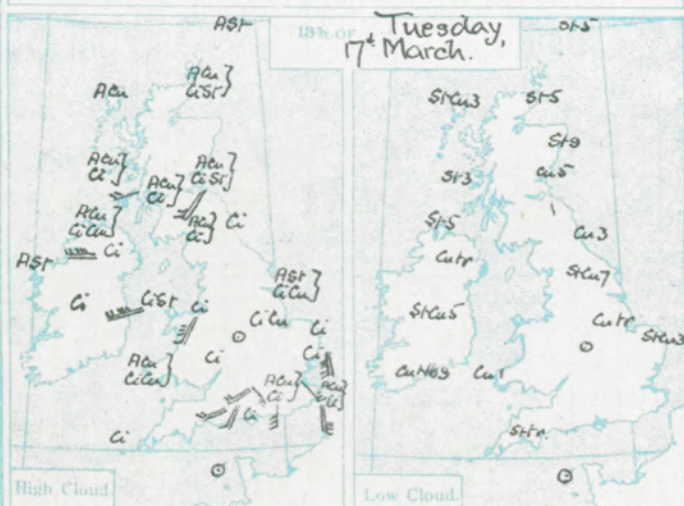 13h. OF Tuesday,
17th March.
ASt
ACu
ACu
CiSt
ACu
Ci
ACu
Ci
ACu
CiSt
ACu
CiCu
ACu
Ci
Ci
ASt
Ci
ASt
CiCu
Ci
CiSt
Ci
CiCu
Ci
Ci
Ci
ACu
CiCu
ACu
Ci
ACu
Ci
Ci
Ci
High Cloud.
St5
StCu3
St5
St9
St3
Cu5
St5
Cu3
Cutr
StCu7
StCu5
Cutr
StCu3
CuNb9
Cu1
Sttr.
Low Cloud.